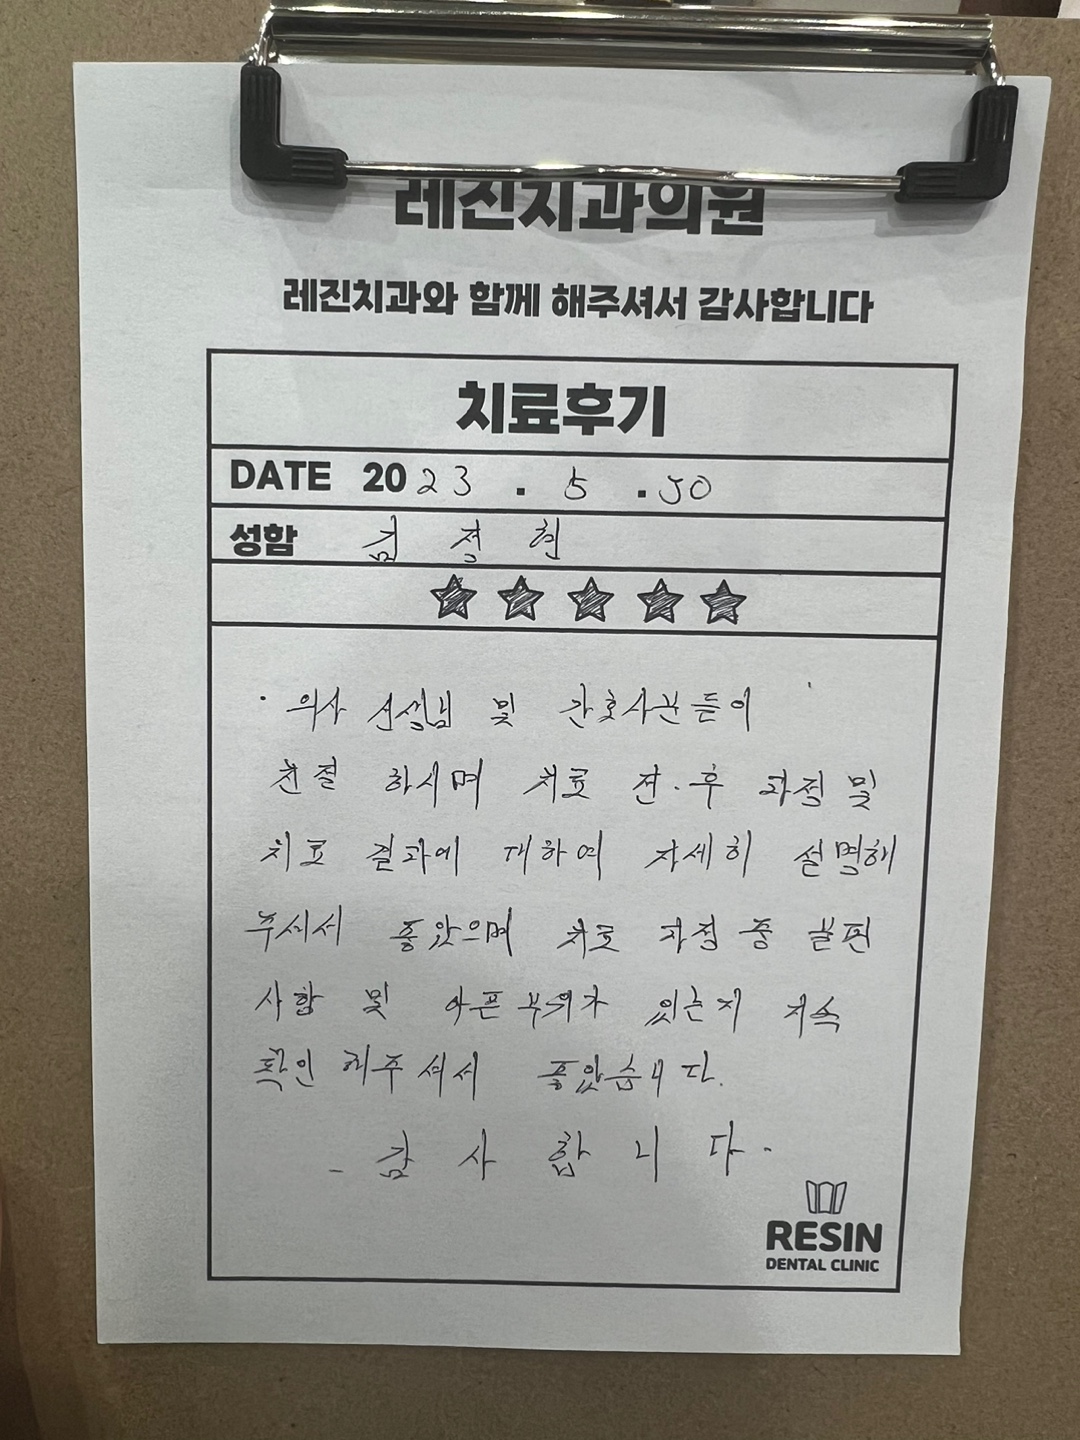 레진치과의원
레진치과와 함께 해주셔서 감사합니다
치료후기
DATE 2023 . 5 . 30
성함 김 정 현
의사 선생님 및 간호사분들이
친절 하시며 치료 전·후 과정 및
치료 결과에 대하여 자세히 설명해
주셔서 좋았으며 치료 과정 중 불편
사항 및 아픈 부위가 있는지 지속
확인 해주셔서 좋았습니다.
- 감 사 합 니 다 -
RESIN
DENTAL CLINIC